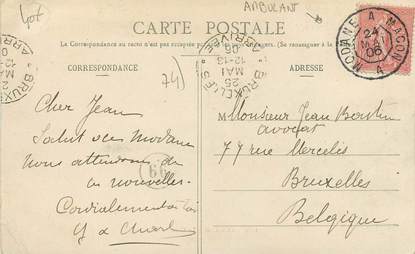 AMBULANT
CARTE POSTALE
La Correspondance au recto n'est pas acceptée
(Se renseigner à la
CORRESPONDANCE
ADRESSE
MODANE A MACON
24
MAI
06
BRUXELLES
ARRIVEE
25
MAI
12-13
06
BRUX
74)
Cher Jean
Salut de Modane
Nous attendons de
nouvelles.
Cordialement à toi
Monsieur Jean
avocat
77 rue Mercelis
Bruxelles
Belgique